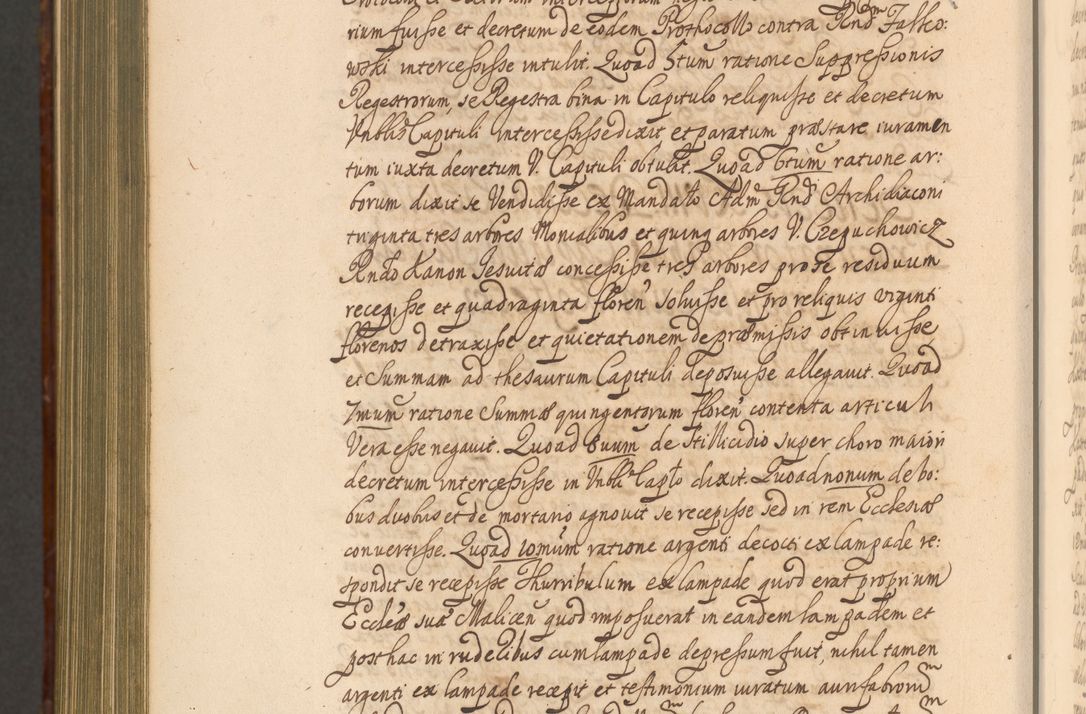 rium fuisse et decretum de eodem Prothocollo contra Rndm Falko:
wski intercessisse intulit. Quoad 5tum ratione Suppressionis
Regestrorum, se Regestra bina in Capitulo reliquisse et decretum
Vnblis Capituli intercessisse dixit et paratum præstare iuramen
tum iuxta decretum V. Capituli obtulit. Quoad 6tum ratione ar:
borum dixit se Vendidisse ex Mandato Adm Rnd Archidiaconi
triginta tres arbores Monialibus et quinq arbores V. Czeguchowicz
Rndo Kanon Jesuitæ concessisse tres arbores pro se residuum
recepisse et quadraginta floren soluisse et pro reliquis viginti
florenos detraxisse et quietationem de præmissis obtinuisse
et Summam ad thesaurum Capituli deposuisse allegauit. Quoad
7mum ratione Summæ quingentorum floren contenta articuli
Vera esse negauit. Quoad 8uum de stillicidio super choro maiori
decretum intercessisse in Vnbli Caplo dixit. Quoad nonum de bo:
bus duobus et de mortario agnouit se recepisse sed in rem Ecclesiæ
conuertisse. Quoad 10mum ratione argenti decocti ex lampade re:
spondit se recepisse Thurribulum ex lampade quod erat proprium
Eccleæ suæ Malicen quod imposuerat in eandem lampadem et
post hac in rudelibus cum lampade depressum fuit, nihil tamen
argenti ex lampade recepit et testimonium iuratum aurifabrorum